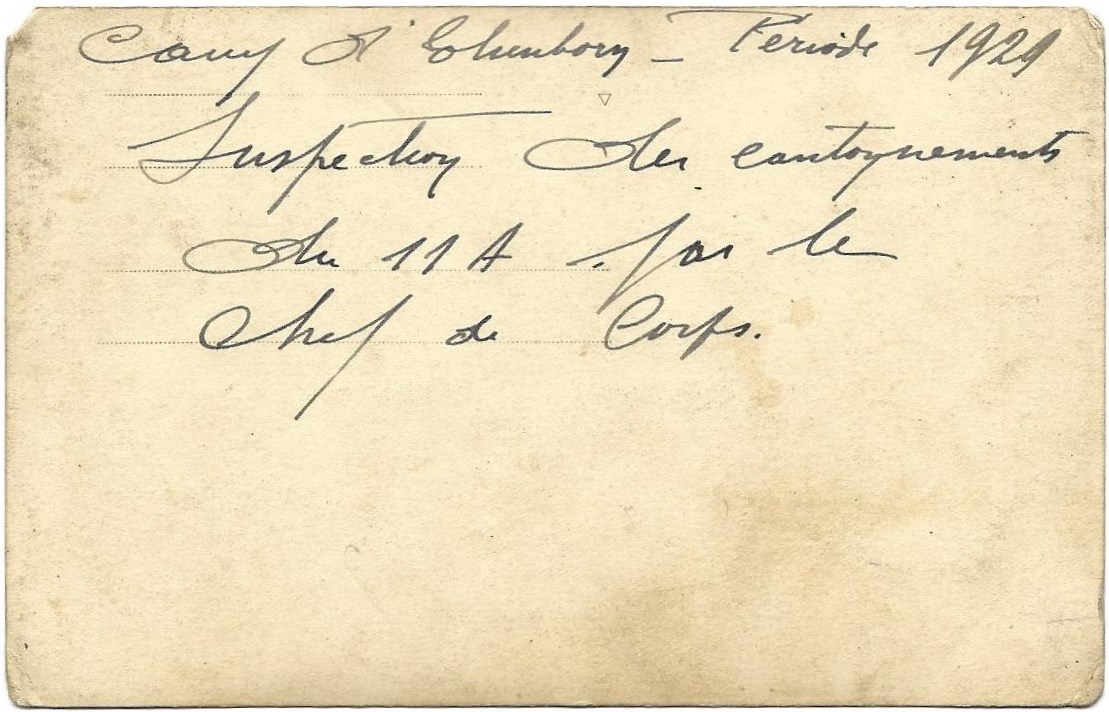 Camp d'Elsenborn - Période 1929
Inspection des cantonnements
du 11 A par le
Chef de Corps.